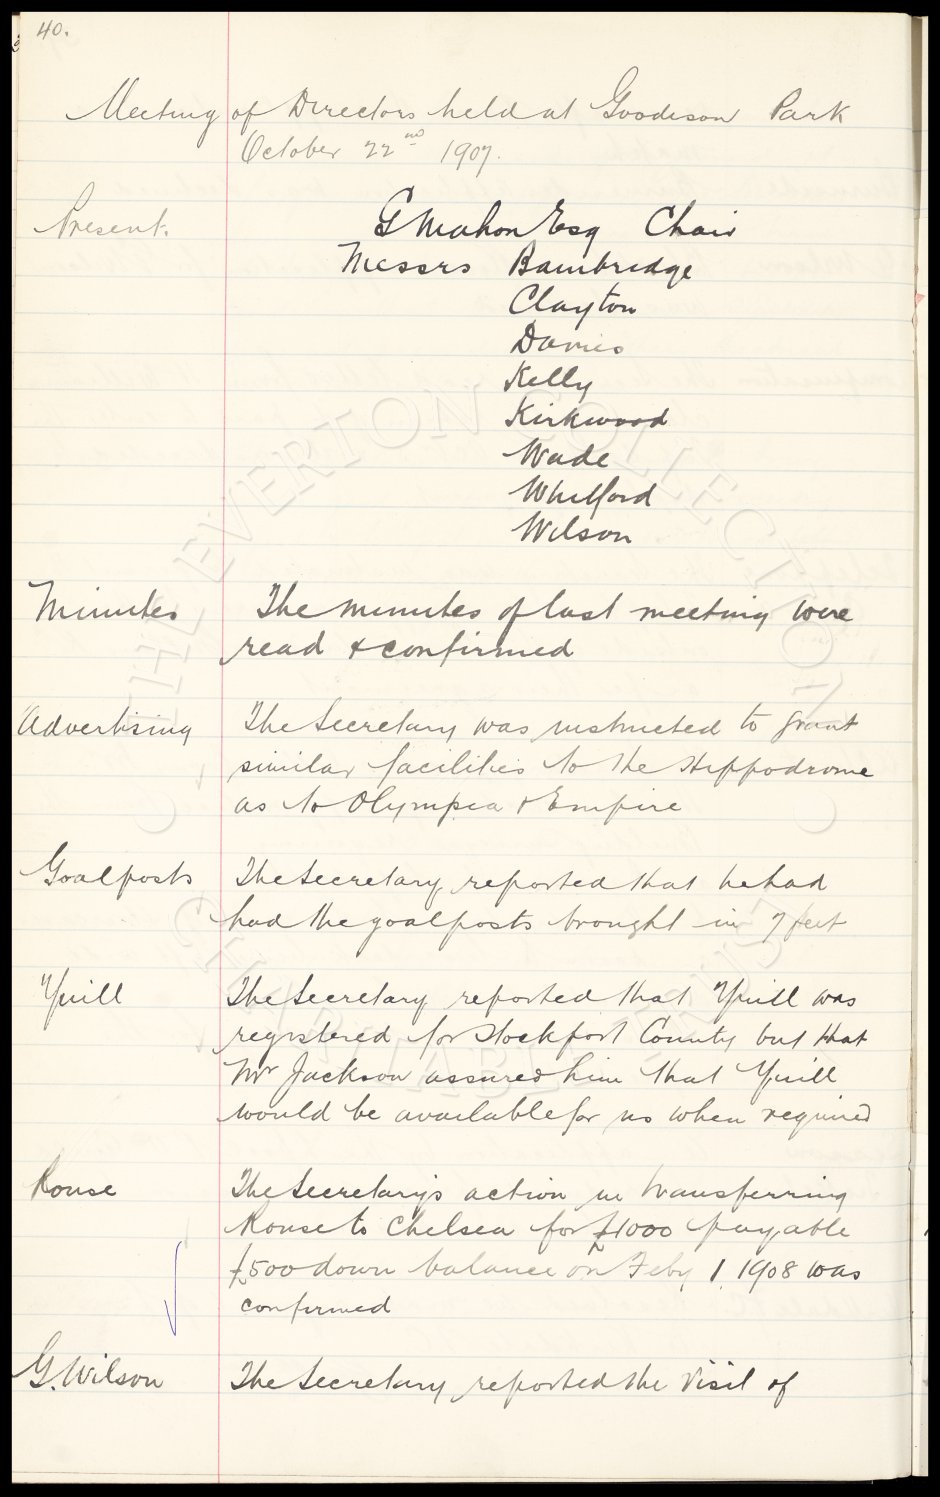 40.
Meeting of Directors held at Goodison Park
October 22nd 1907.
Present. G Mahon Esq Chair
Messrs Bainbridge
Clayton
Davies
Kelly
Kirkwood
Wade
Whitford
Wilson
Minutes The minutes of last meeting were
read & confirmed
Advertising The Secretary was instructed to grant
similar facilities to the Hippodrome
as to Olympia & Empire
Goalposts The Secretary reported that he had
had the goalposts brought in 7 feet
The Secretary reported that was
registered for Stockport County but that
Mr Jackson assured him that
would be available for us when required
Rouse The Secretary's action in transferring
Rouse to Chelsea for £1000 payable
£500 down balance on Feby 1 1908 was
confirmed
G. Wilson The Secretary reported the visit of
THE EVERTON COLLECTION
CHARITABLE TRUST